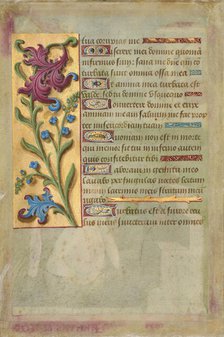 tua corripias me
Miserere mei domine quoniam
infirmus sum
turbata sunt omnia ossa mea
Et anima mea turbata est
sed tu domine
Convertere domine et
animam meam saluum me fac prop
ter misericordiam tuam
Quoniam non est in morte
qui memor sit tui in inferno autem
quis confitebitur tibi
Laboraui in gemitu meo
lauabo per singulas noctes lectum
meum lacrimis meis stratum meum
rigabo
Turbatus est a furore
lus meus inueteraui inter omnes